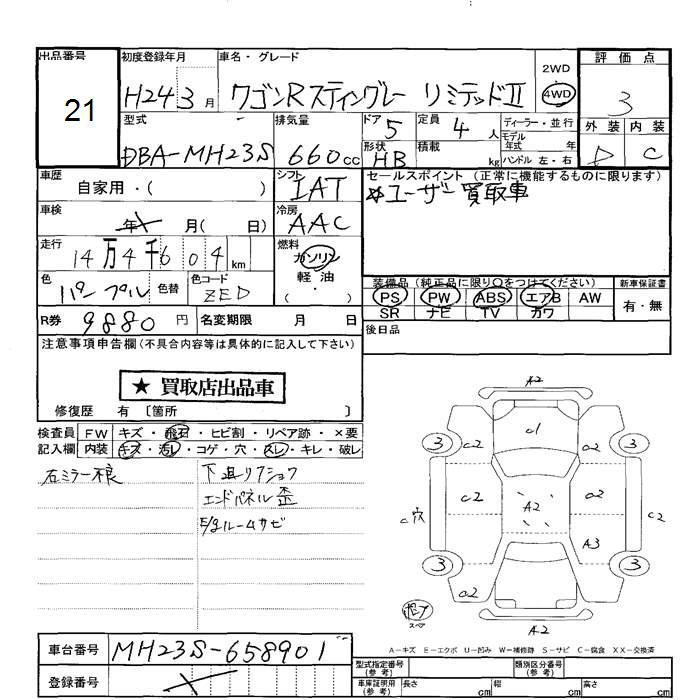 出品番号 初度登録年月 車名・グレード 2WD 評価点
21 H24 3月 ワゴンRスティングレー リミテッドII 4WD 3
型式 排気量 ドア 5 定員 4人 ディーラー・並行 外装 内装
モデル年式 年
DBA-MH23S 660cc 形状 HB 積載 kg ハンドル 左・右 D C
車歴 自家用・( ) シフト IAT セールスポイント (正常に機能するものに限ります)
*ユーザー買取車
車検 年 月( 日) 冷房 AAC
走行 14万4千604km 燃料 ガソリン
軽油
・( )
色 パープル 色替 色コード ZED
装備品 (純正品に限り○をつけてください) 新車保証書
PS PW ABS エアB AW 有・無
SR ナビ TV カワ
R券 9880円 名変期限 月 日 後日品
注意事項申告欄(不具合内容等は具体的に記入して下さい)
★ 買取店出品車
修復歴 有 〔箇所 〕
検査員 FW キズ・飛石・ヒビ割・リペア跡・×要
記入欄 内装 キズ・汚レ・コゲ・穴・スレ・キレ・破レ
右ミラー不良 下廻りサビ
エンドパネル歪
A2
C1
3 C2 A2 3
C穴 C2 A2 A2 C2
A3
3 3
A2
スペア
A2
A－キズ E－エクボ U－凹み W－補修跡 S－サビ C－腐食 XX－交換済
車台番号 MH23S-658901
型式指定番号(参考) 類別区分番号(参考)
登録番号
車庫証明用(参考) 長さ cm 幅 cm 高さ cm